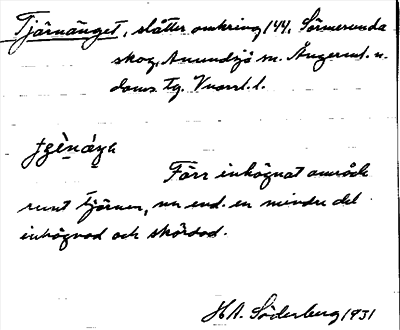 Tjärnänget, slåtter omkring 144. Sörmesunda
skog, Anundsjö sn. Ångerml. n.
doms. tg. Vnorrl. l.
Förr inhägnat område
runt tjärnen, nu end. en mindre del
inhägnad och skördad.
H.A. Söderberg 1931